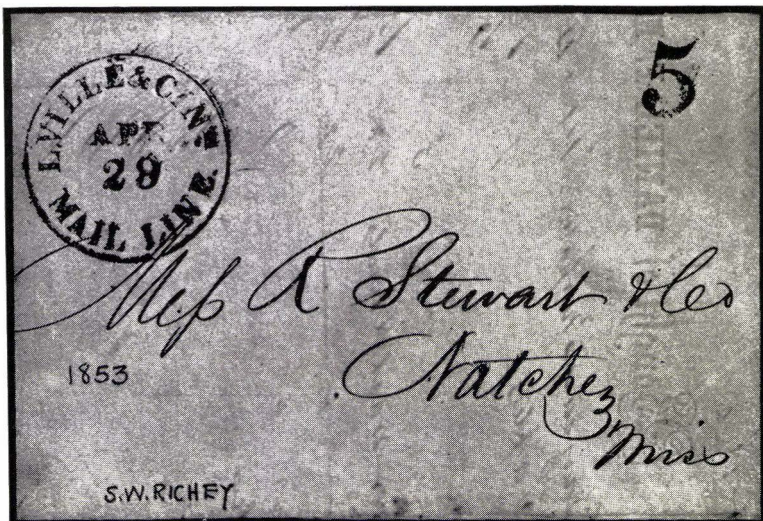 L.VILLE & CIN.
APR
29
MAIL LINE.
5
Mess R Stewart & Co
Natchez
Miss
1853
S.W. RICHEY